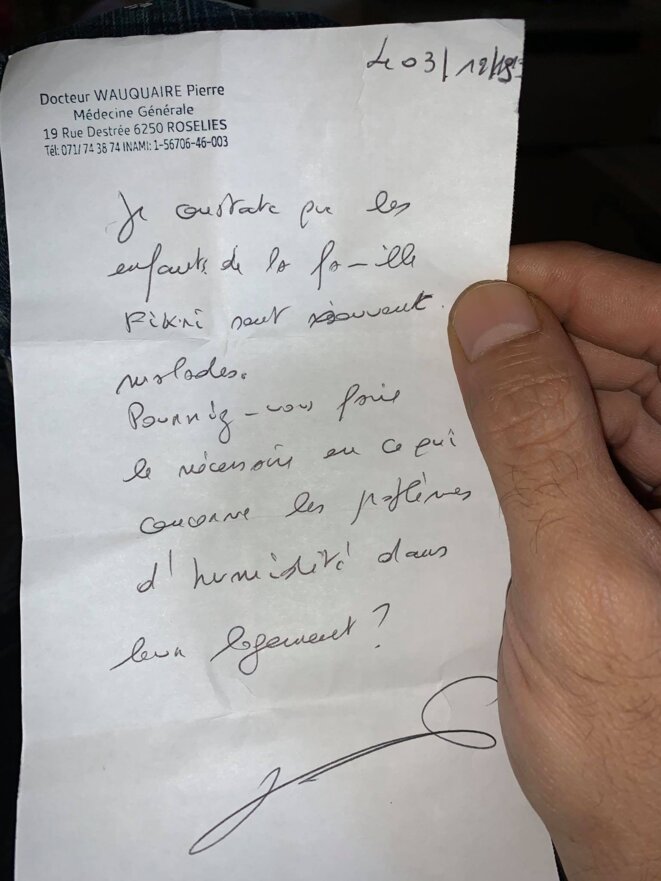 Le 03/12/19
Docteur WAUQUAIRE Pierre
Médecine Générale
19 Rue Destrée 6250 ROSELIES
Tél: 071/74 38 74 INAMI: 1-56706-46-003
Je constate que les
enfants de la famille
FIKRI sont souvent
malades.
Pourriez-vous faire
le nécessaire en ce qui
concerne les problèmes
d'humidité dans
leur logement ?